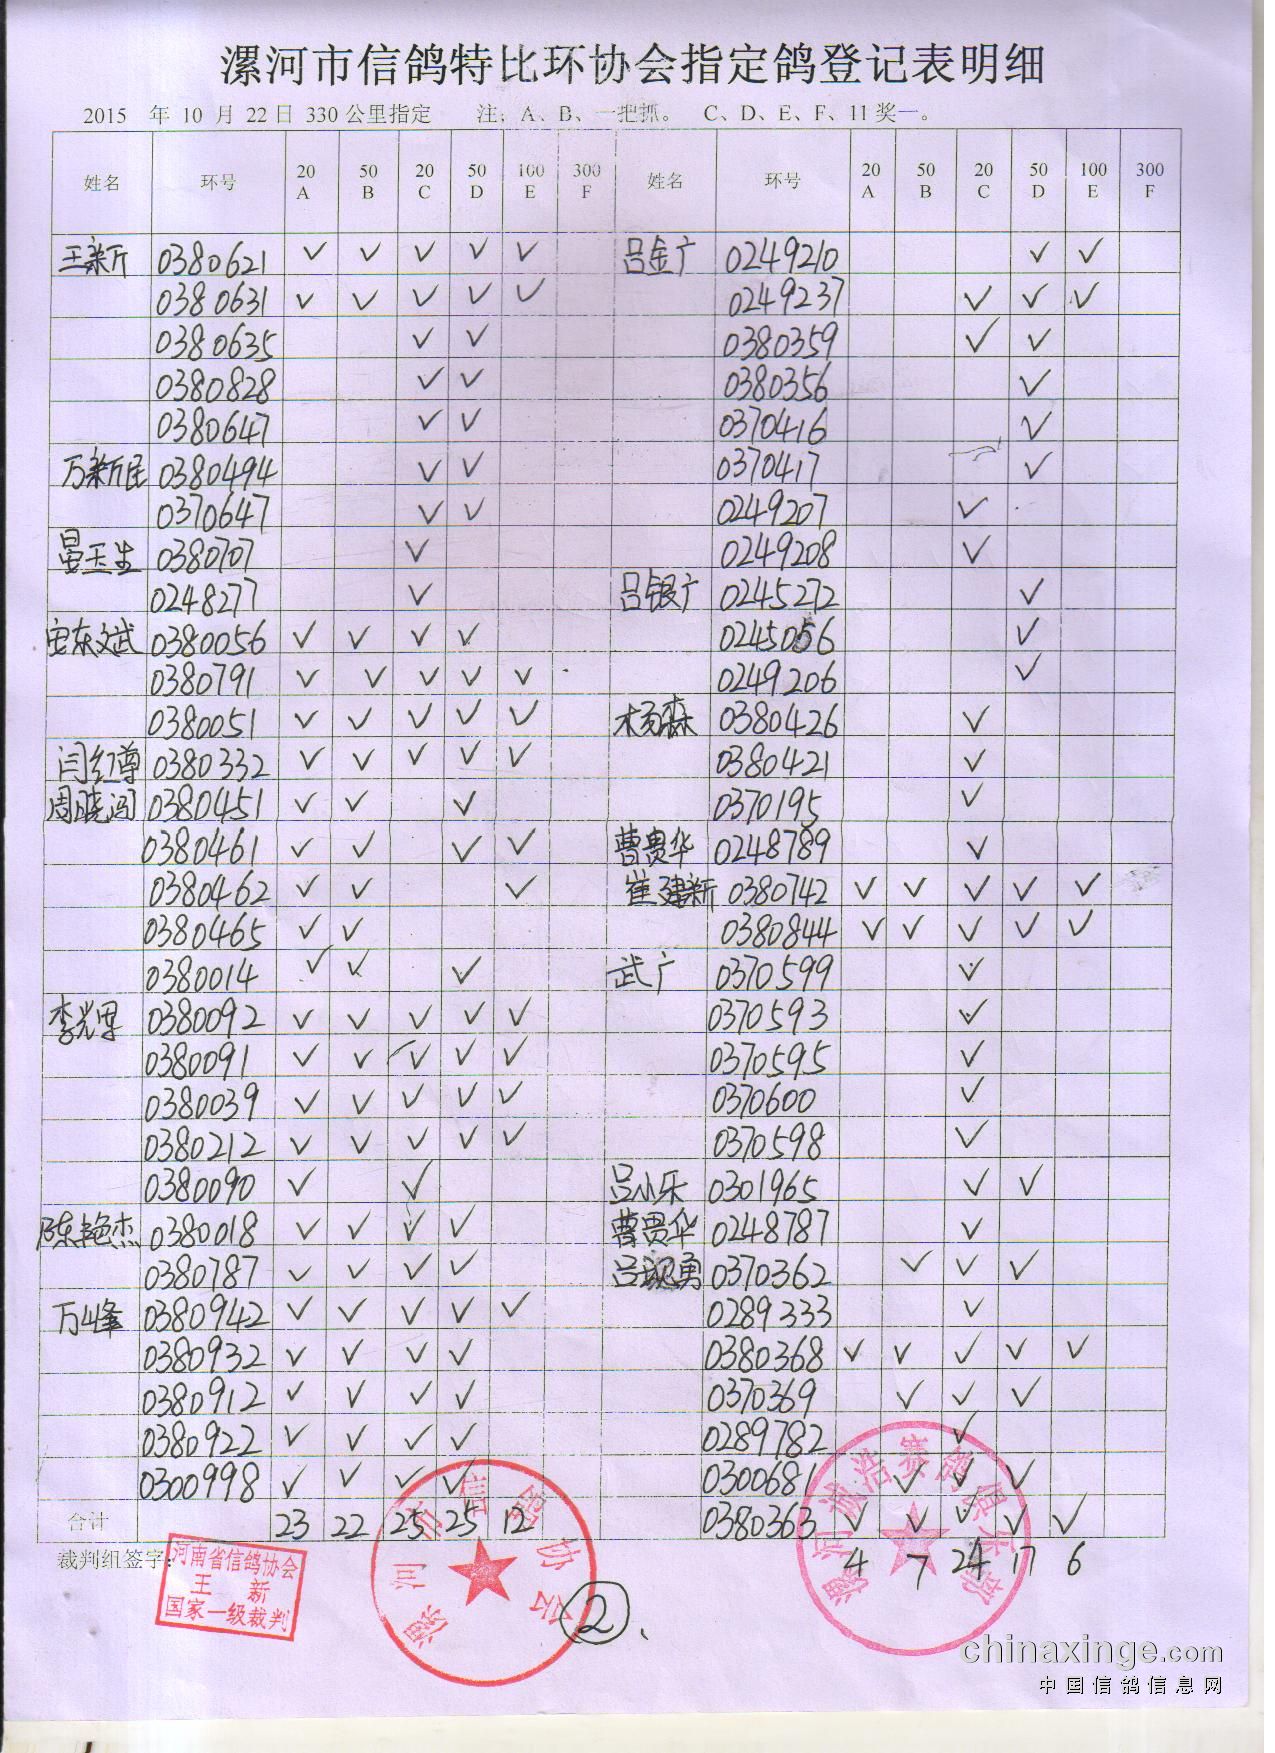 漯河市信鸽特比环协会指定鸽登记表明细
2015 年 10 月 22日 330 公里指定 注：A、B、一把抓。 C、D、E、F、11 奖一。
姓名 环号 20 A 50 B 20 C 50 D 100 E 300 F 姓名 环号 20 A 50 B 20 C 50 D 100 E 300 F
王新斤 0380621 ✓ ✓ ✓ ✓ ✓ 吕金广 0249210 ✓ ✓
0380631 ✓ ✓ ✓ ✓ ✓ 0249237 ✓ ✓ ✓
0380635 ✓ ✓ 0380359 ✓ ✓
0380828 ✓ ✓ 0380356 ✓
0380647 ✓ ✓ 0370416 ✓
万新民 0380494 ✓ ✓ 0370417 ✓
0370647 ✓ ✓ 0249207 ✓
晏玉生 0380707 ✓ 0249208 ✓
0248277 ✓ 吕银广 0245272 ✓
安东文武 0380056 ✓ ✓ ✓ ✓ 0245056 ✓
0380791 ✓ ✓ ✓ ✓ ✓ 0249206 ✓
0380051 ✓ ✓ ✓ ✓ ✓ 杨森 0380426 ✓
闫红尊 0380332 ✓ ✓ ✓ ✓ ✓ 0380421 ✓
周晓闯 0380451 ✓ ✓ ✓ 0370195 ✓
0380461 ✓ ✓ ✓ ✓ 曹贵华 0248789 ✓
0380462 ✓ ✓ ✓ 崔建新 0380742 ✓ ✓ ✓ ✓ ✓
0380465 ✓ ✓ 0380844 ✓ ✓ ✓ ✓ ✓
0380014 ✓ ✓ ✓ 武广 0370599 ✓
李光军 0380092 ✓ ✓ ✓ ✓ ✓ 0370593 ✓
0380091 ✓ ✓ ✓ ✓ ✓ 0370595 ✓
0380039 ✓ ✓ ✓ ✓ ✓ 0370600 ✓
0380212 ✓ ✓ ✓ ✓ ✓ 0370598 ✓
0380090 ✓ ✓ 吕小乐 0301965 ✓ ✓
陈艳杰 0380018 ✓ ✓ ✓ ✓ 曹贵华 0248787 ✓
0380787 ✓ ✓ ✓ ✓ 吕现勇 0370362 ✓ ✓ ✓
万峰 0380942 ✓ ✓ ✓ ✓ ✓ 0289333 ✓
0380932 ✓ ✓ ✓ ✓ 0380368 ✓ ✓ ✓ ✓ ✓
0380912 ✓ ✓ ✓ ✓ 0370369 ✓ ✓ ✓
0380922 ✓ ✓ ✓ ✓ 0289782 ✓
0300998 ✓ ✓ ✓ ✓ 0300681 ✓ ✓ ✓
合计 23 22 25 25 12 0380363 ✓ ✓ ✓ ✓ ✓
4 7 24 17 6
裁判组签字：
河南省信鸽协会
王 新
国家一级裁判
漯河市信鸽协会
②、
漯河诚浩赛鸽俱乐部
chinaxinge.com
中国信鸽信息网